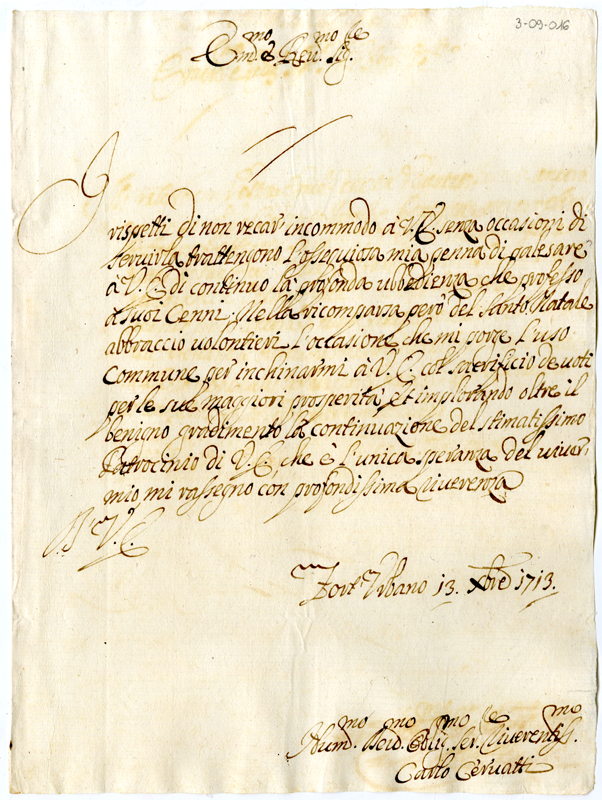 3-09-016
Em.mo e Reu.mo Sig.re
I
rispetti di non recar incommodo à V.E. senza occasioni di
seruirla trattengono l'ossequiosa mia penna di palesare
à V.E. di continuo la profonda ubbedienza che professo
a suoi Cenni. Nella ricomparsa però del Santo Natale
abbraccio volontieri l'occasione che mi porge l'uso
commune per inchinarmi à V.E. col sacrificio de uoti
per le sue maggiori prosperità, et implorando oltre il
benigno gradimento la continuazione del stimatissimo
Patrocinio di V.E. che è l'unica speranza del uiuer
mio mi rassegno con profondissima riuerenza
D. V.E.
Fort Vrbano 13. Xbre 1713.
Hum.mo Deuo.mo Oblig.mo Ser.re Riuerentiss.mo
Carlo Ceruatti